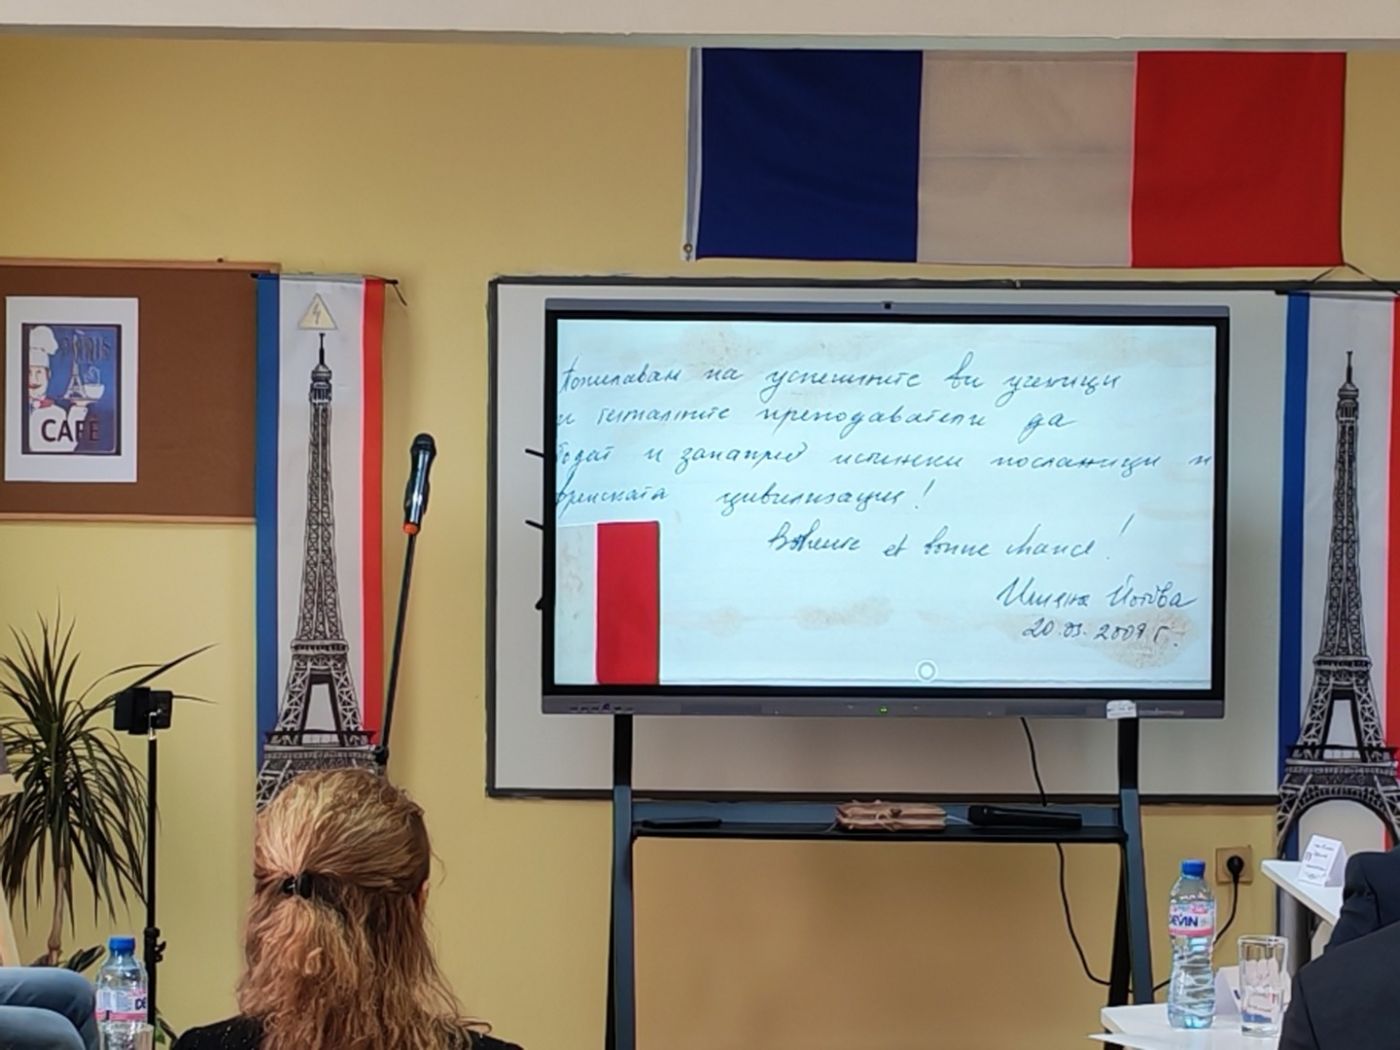 PARIS
CAFÉ
Пожелавам на успешните ви ученици
и техните преподаватели да
бъдат и занапред истински посланици н
френската цивилизация!
et bonne chance!
Илияна Йотова
20.03.2009 г.
DEVIN